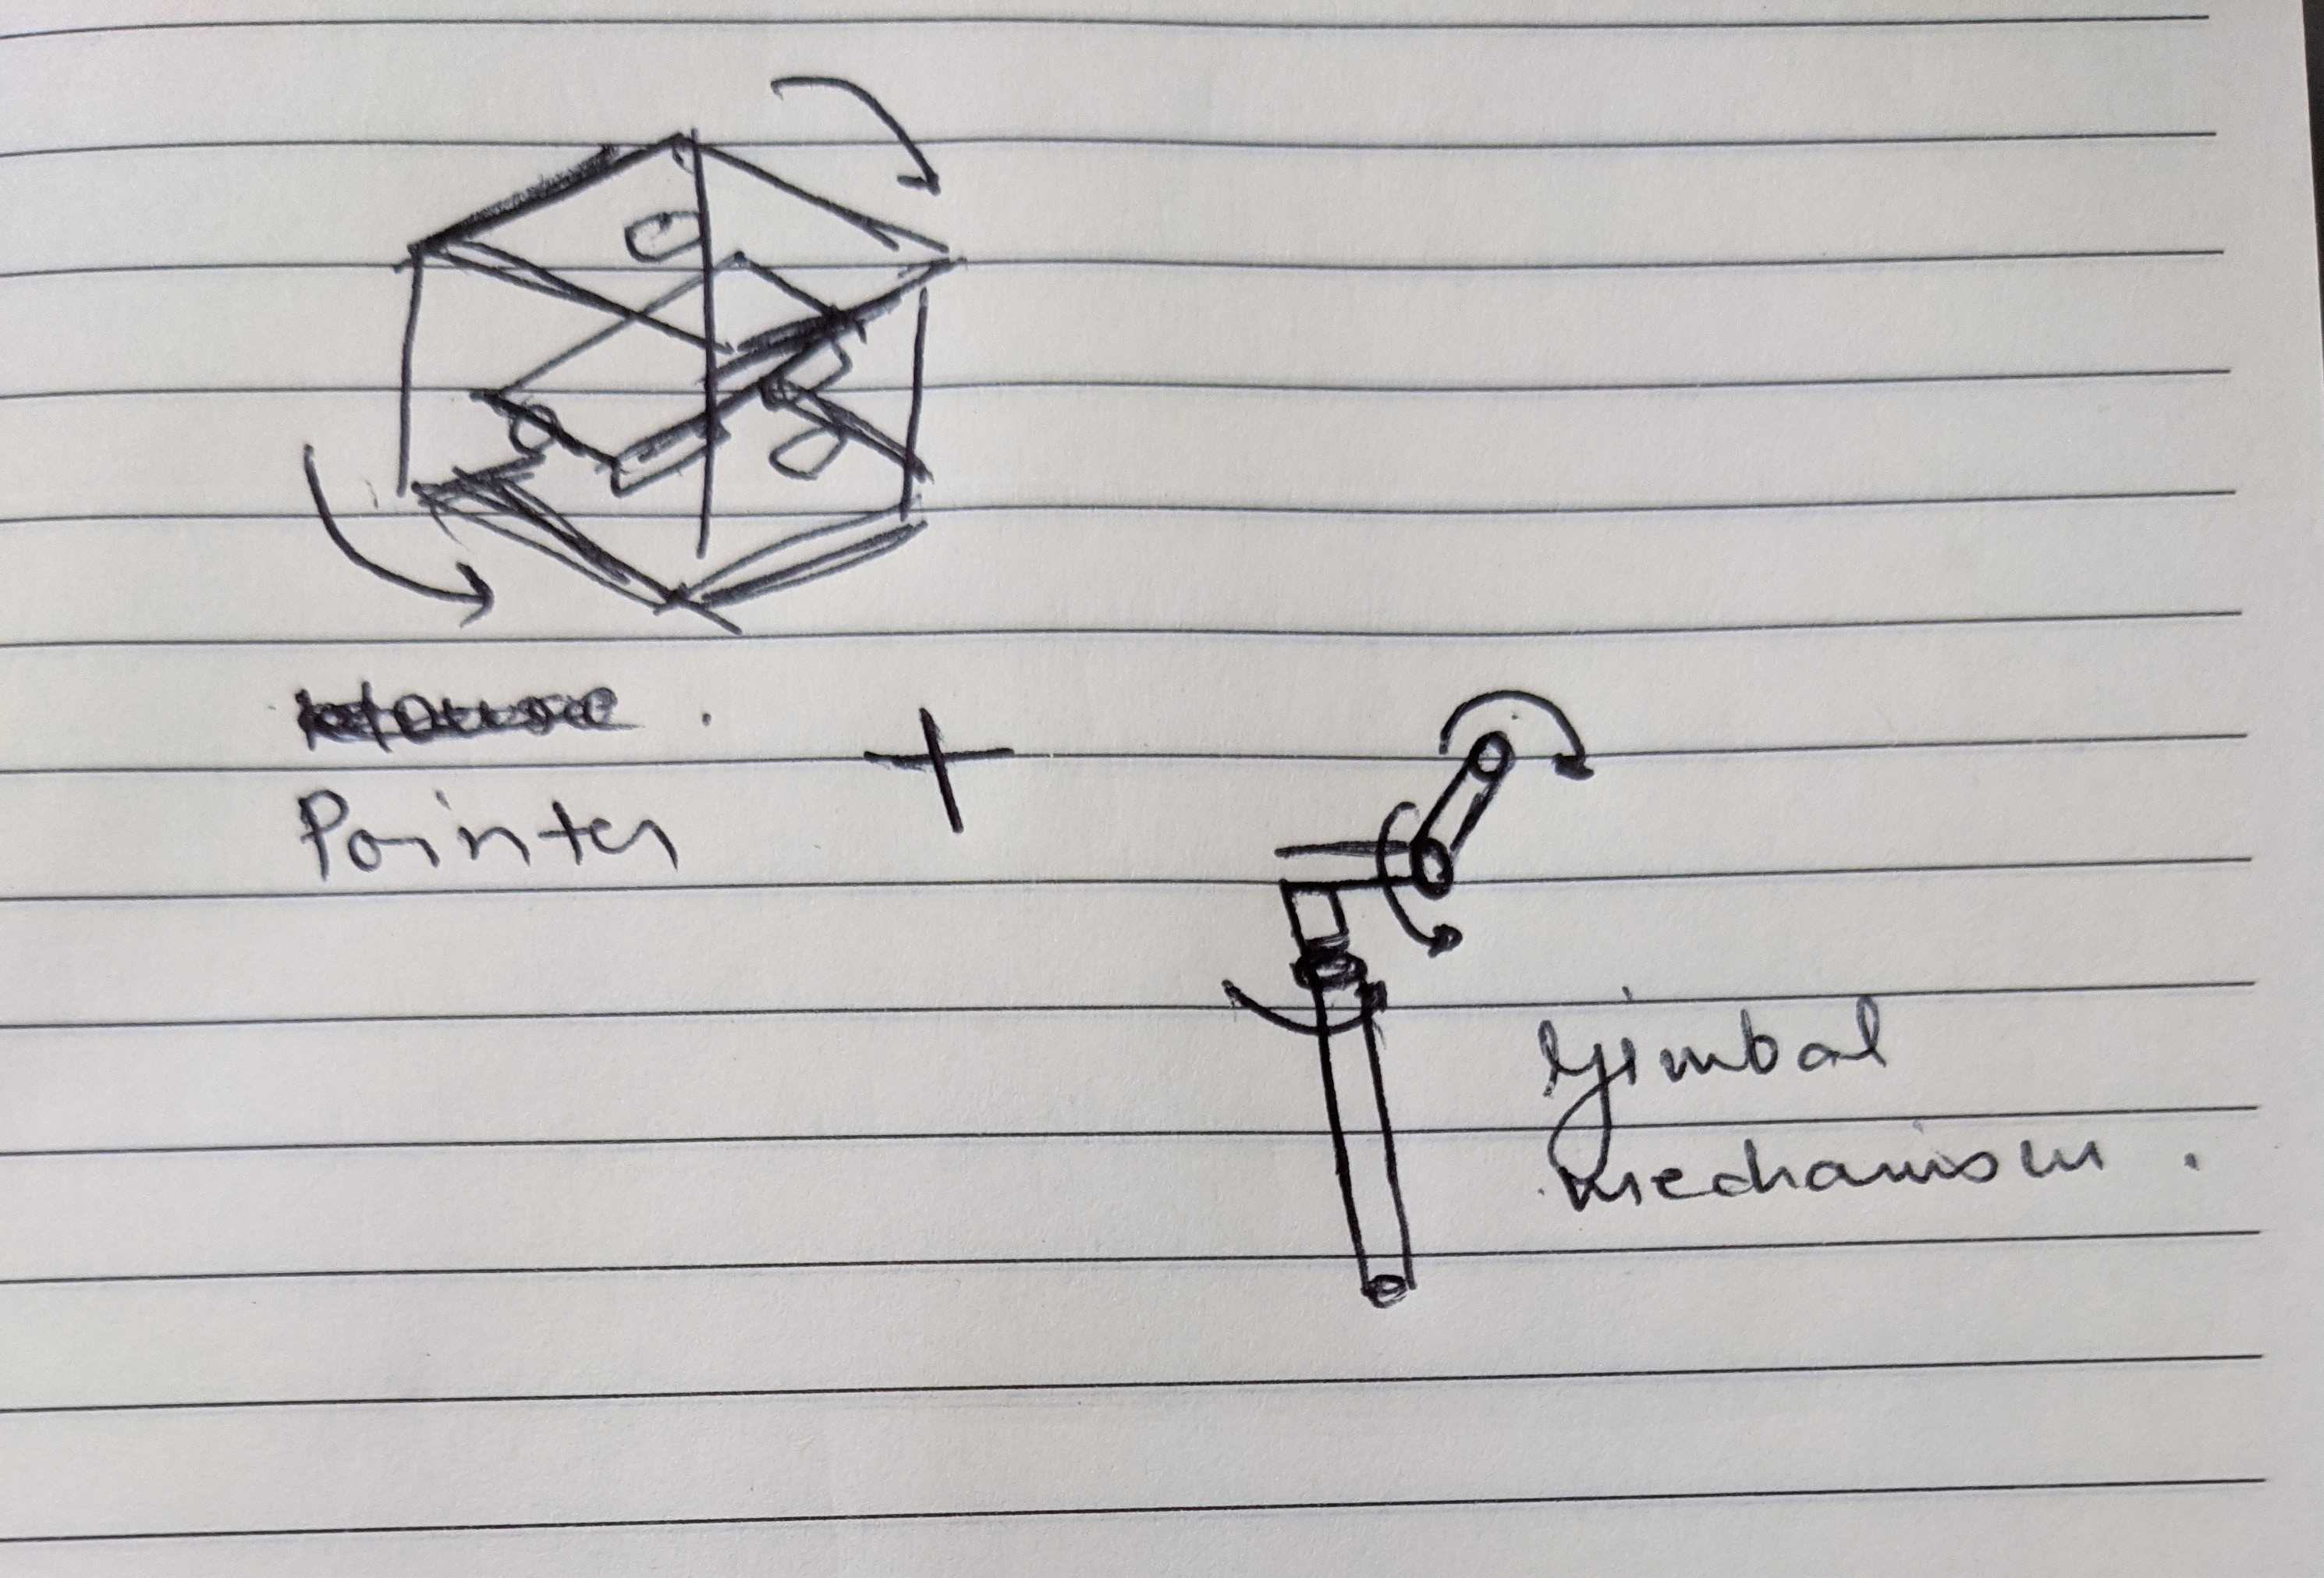 Pointer
+
Gimbal
mechanism.